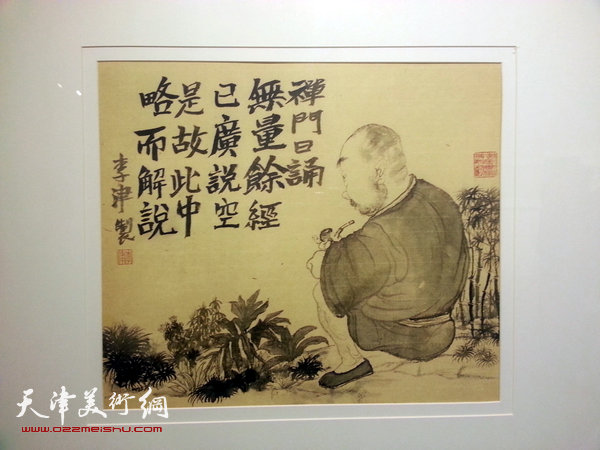 禪門日誦
無量餘經
已廣說空
是故此中
略而解說
李津製
天津美術網
www.ozzmeishu.com